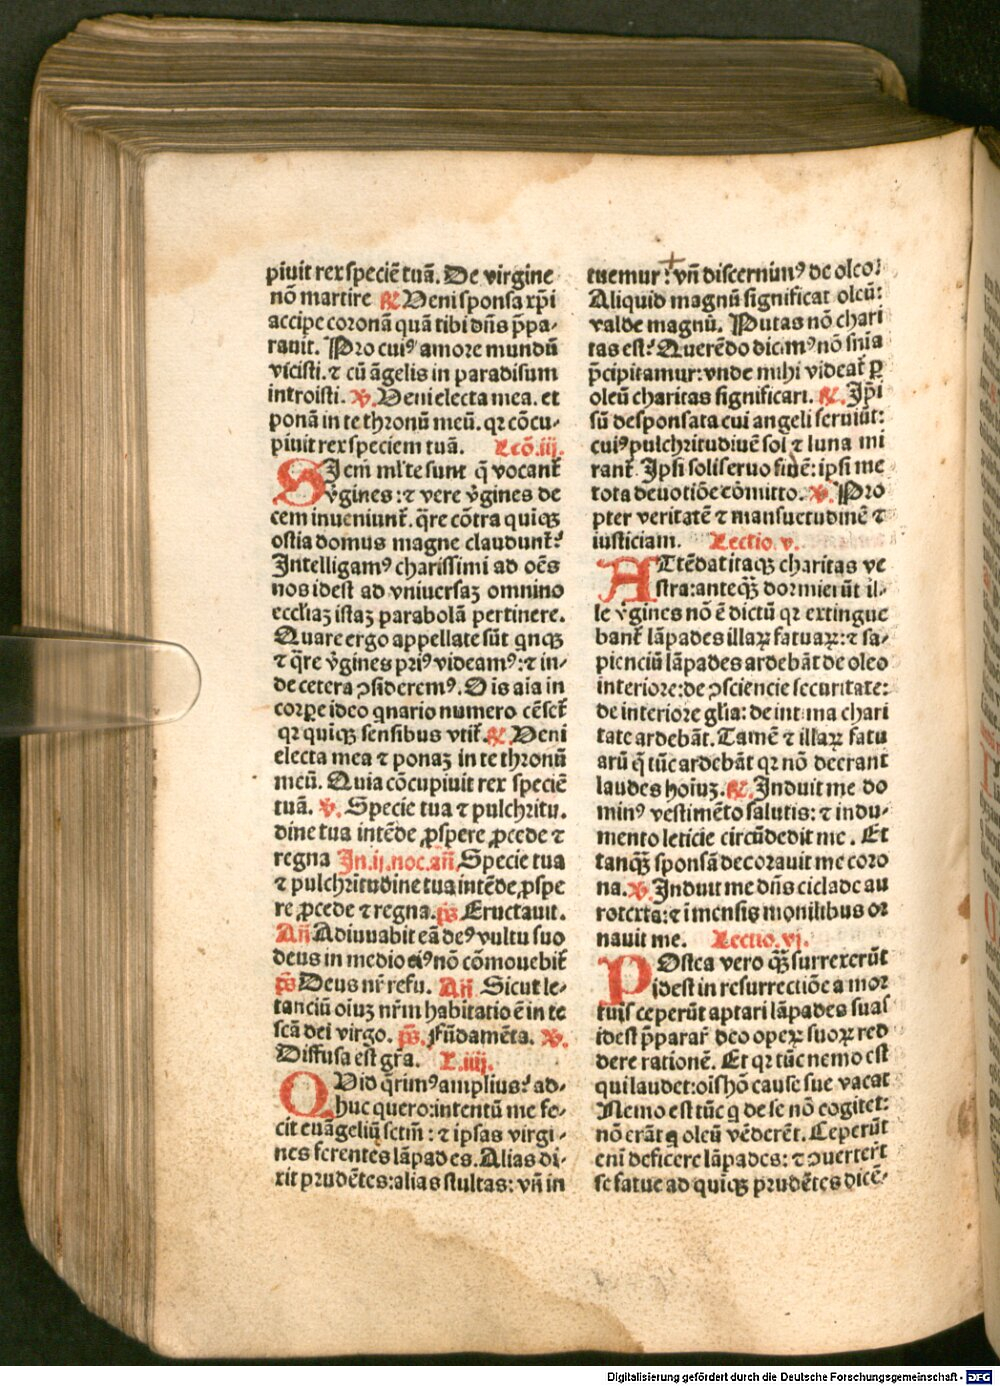 piuit rex speciē tuā. De virgine
nō martire ℟. Veni sponsa xp̄i
accipe coronā quā tibi dn̄s p̄pa-
rauit. Pro cuiꝰ amore mundū
vicisti. ⁊ cū āgelis in paradisum
introisti. ℣. Veni electa mea. et
ponā in te thronū meū. qꝛ cōcu-
piuit rex speciem tuā. Lcō.iij.
SI em̄ ml̄te sunt q̄ vocant̄
v̄gines: ⁊ vere v̄gines de
cem inueniunt̄. q̄re cōtra quīqꝫ
ostia domus magne claudunt̄?
Intelligamꝰ charissimi ad oēs
nos idest ad vniuersaꝫ omnino
eccl̄iaꝫ istaꝫ parabolā pertinere.
Quare ergo appellate sūt qnqꝫ
⁊ q̄re v̄gines priꝰ videamꝰ: ⁊ in-
de cetera ꝯsideremꝰ. Ois aīa in
corpe ideo qnario numero cēset̄
qꝛ quīqꝫ sensibus vtit̄. ℟. Veni
electa mea ⁊ ponaꝫ in te thronū
meū. Quia cōcupiuit rex speciē
tuā. ℣. Specie tua ⁊ pulchritu-
dine tua intēde ꝓspere ꝓcede ⁊
regna In.ij.noc.añ. Specie tua
⁊ pulchritudine tua intēde ꝓspe
re ꝓcede ⁊ regna. p̄s Eructauit.
Añ Adiuuabit eā deꝰ vultu suo
deus in medio eiꝰ nō cōmouebit̄
p̄s Deus nr̄ refu. Añ Sicut le-
tanciū oīuꝫ nr̄m habitatio ē in te
scā dei virgo. p̄s. Fūdamēta. ℣.
Diffusa est gr̄a. L.iiij.
QVid q̄rimꝰ amplius? ad-
huc quero: intentū me fe-
cit euāgeliū sctm̄: ⁊ ipsas virgi-
nes ferentes lāpades. Alias di-
xit prudētes: alias stultas: vn̄ in
tuemur? vn̄ discernimꝰ de oleo.
Aliquid magnū significat oleū:
valde magnū. Putas nō chari
tas est? Querēdo dicimꝰ nō sn̄ia
p̄cipitamur: vnde mihi videat̄ ꝑ
oleū charitas significari. ℟. Ip̄i
sū desponsata cui angeli seruiūt:
cuiꝰ pulchritudinē sol ⁊ luna mi
rant̄. Ipsi soli seruo fidē: ipsi me
tota deuotiōe cōmitto. ℣. Pro
pter veritatē ⁊ mansuetudinē ⁊
iusticiam. Lectio.v.
ATtēdat itaqꝫ charitas ve
stra: anteqꝫ dormierūt il-
le v̄gines nō ē dictū qꝛ extingue
bant̄ lāpades illaꝝ fatuaꝝ: ⁊ sa-
pienciū lāpades ardebāt de oleo
interiore: de ꝯsciencie securitate:
de interiore gl̄ia: de intima chari
tate ardebāt. Tamē ⁊ illaꝝ fatu
arū q̄ tūc ardebāt qꝛ nō deerant
laudes hoīuꝫ. ℟. Induit me do
minꝰ vestimēto salutis: ⁊ indu-
mento leticie circūdedit me. Et
tanqꝫ sponsā decorauit me coro
na. ℣. Induit me dn̄s ciclade au
rotexta: ⁊ īmensis monilibus or
nauit me. Lectio.vj.
POstea vero qꝫ surrexerūt
idest in resurrectiōe a mor
tuis ceperūt aptari lāpades suas
idest p̄parar̄ deo opeꝝ suoꝝ red
dere rationē. Et qꝛ tūc nemo est
qui laudet: oīs hō cause sue vacat
Nemo est tūc q de se nō cogitet:
nō erāt q oleū vēderēt. Ceperūt
eni deficere lāpades: ⁊ ꝯuertert̄
se fatue ad quīqꝫ prudētes dicē-
Digitalisierung gefördert durch die Deutsche Forschungsgemeinschaft - DFG